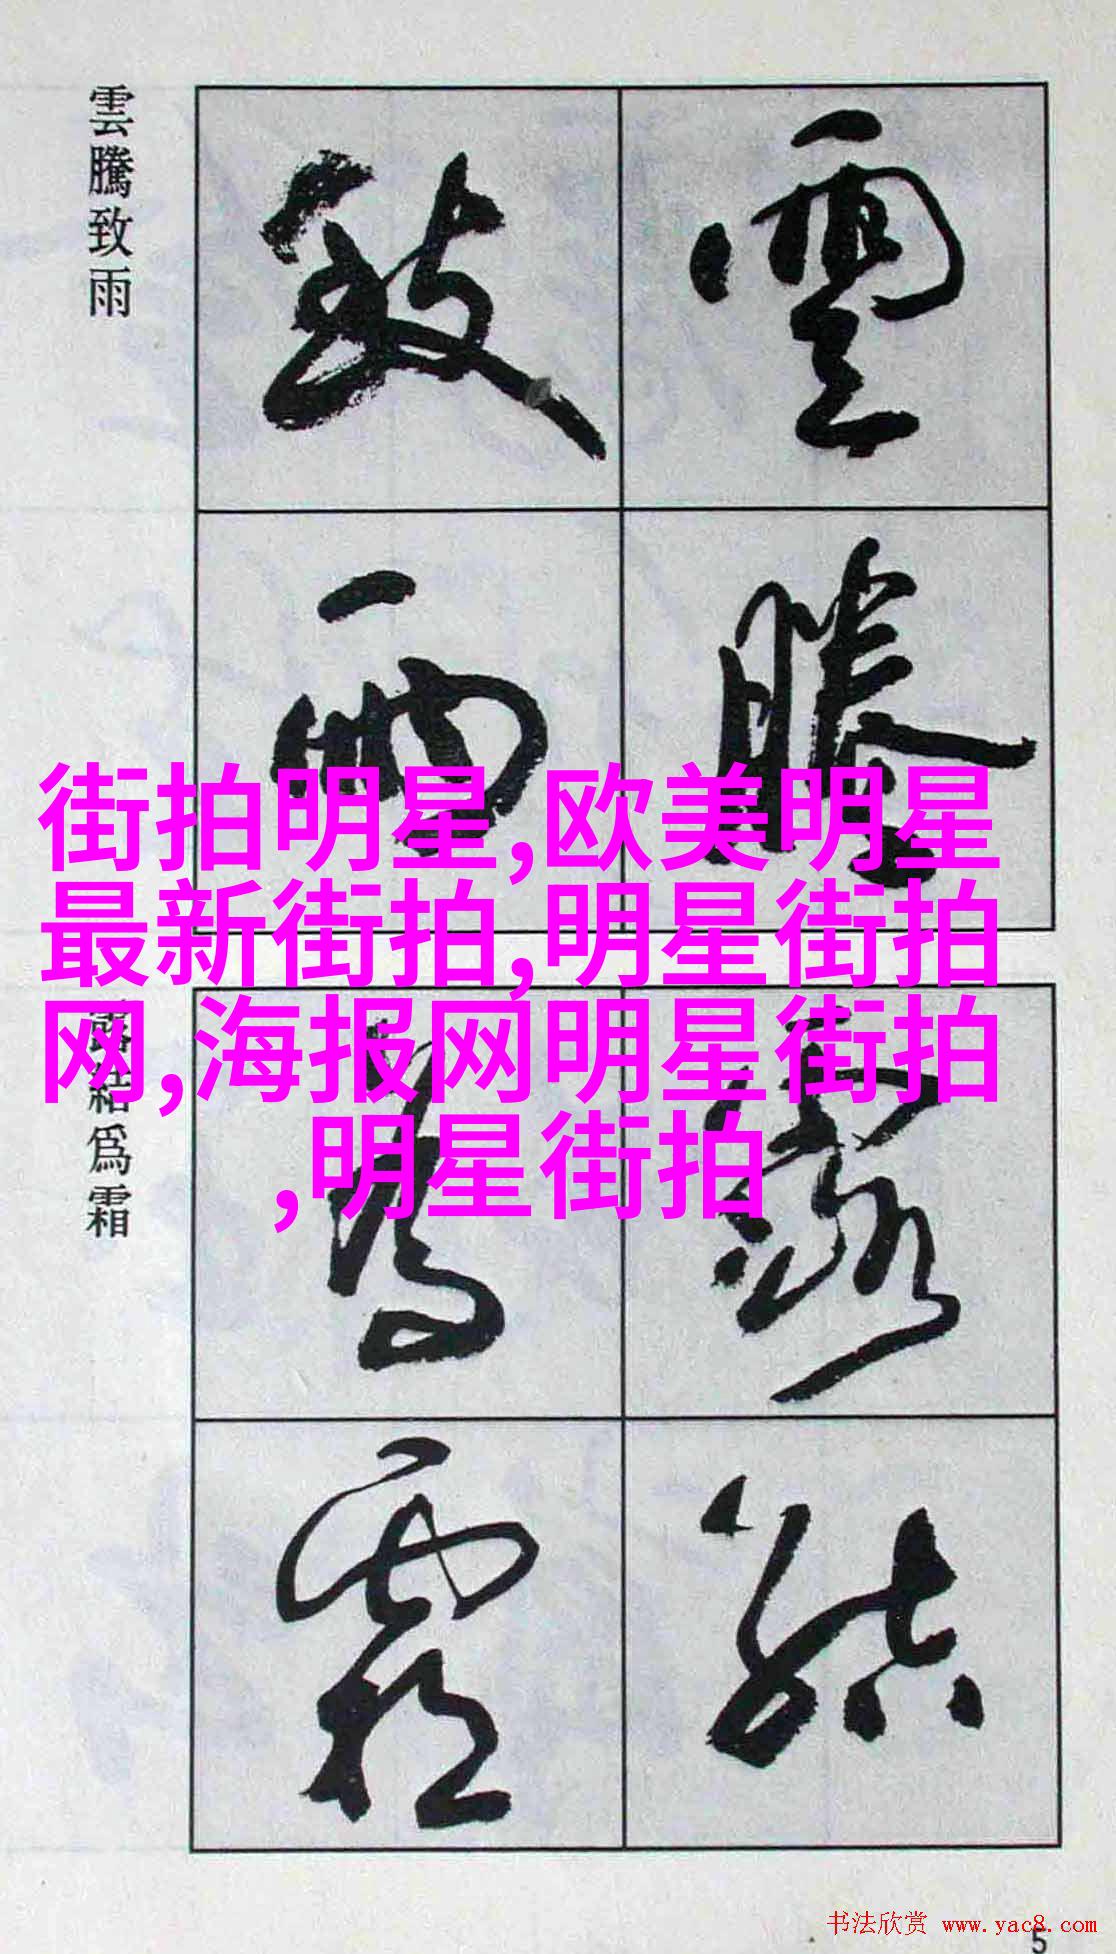 雲騰致雨
雲
騰
致
雨
街拍明星,欧美明星
最新街拍,明星街拍
网,海报网明星街拍
,明星街拍
露結爲霜
露
結
爲
霜
书法欣赏 www.yac8.com
5